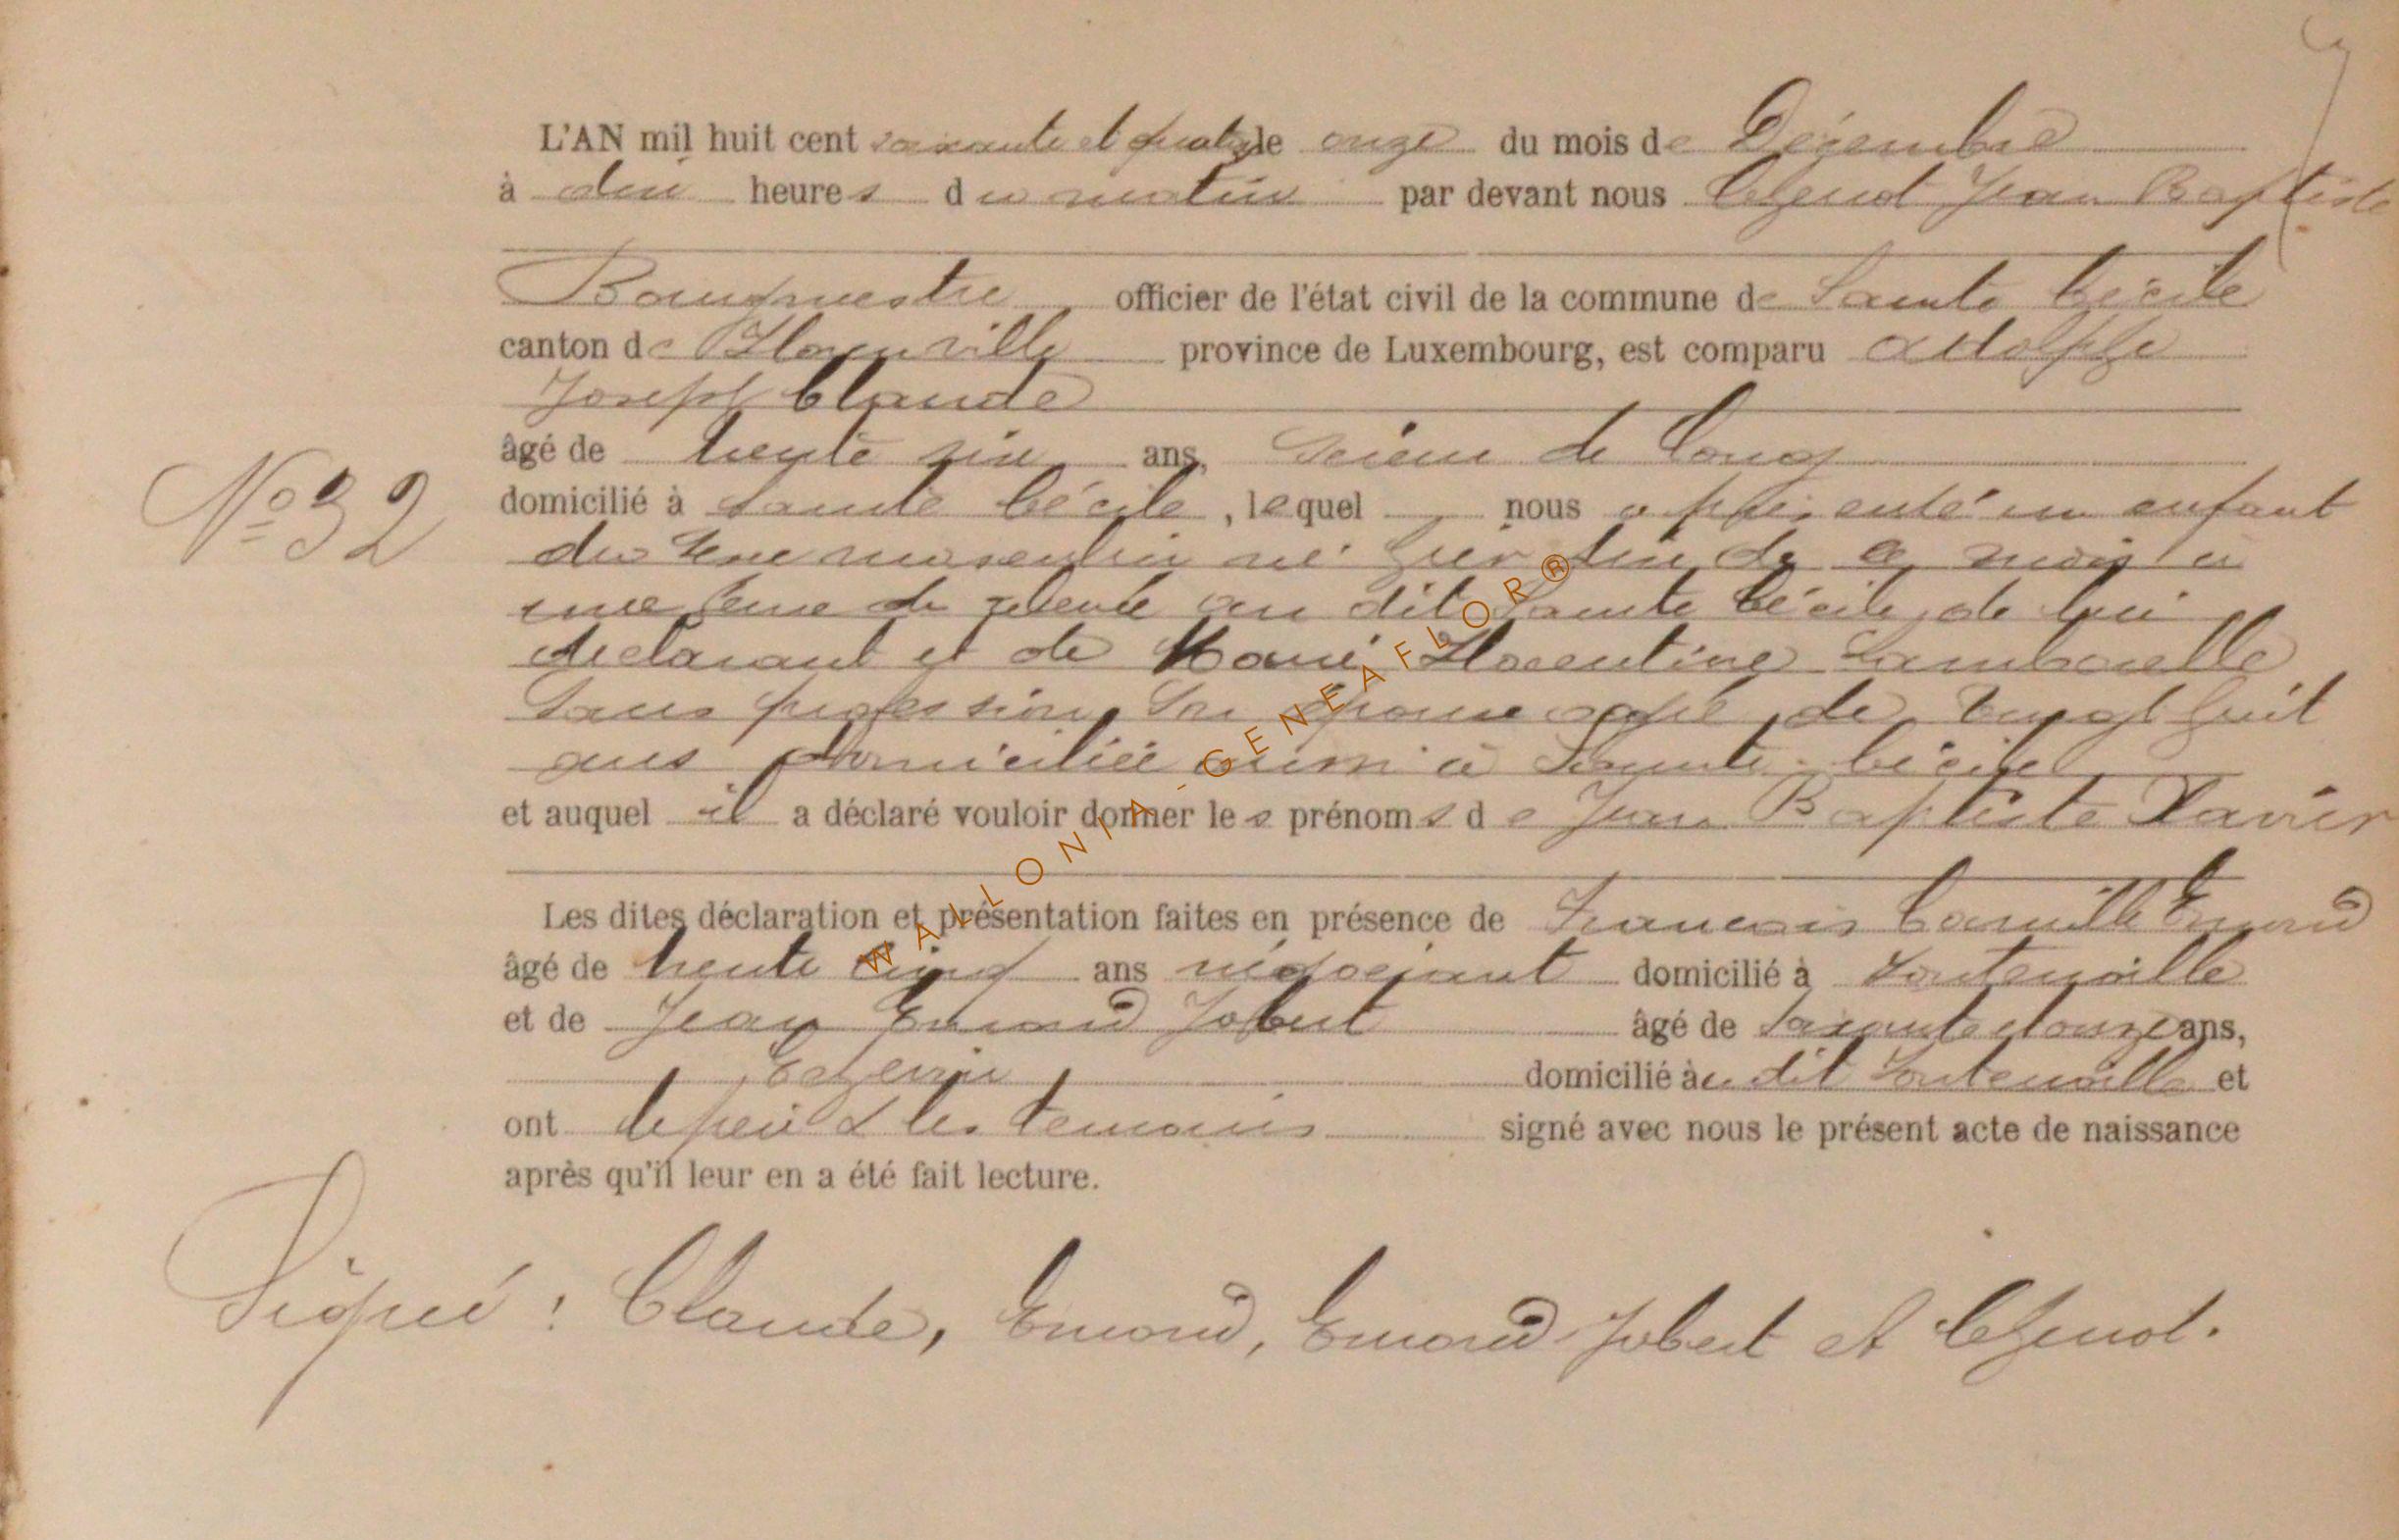 L'AN mil huit cent soixante et quatorze le onze du mois de Décembre
à dix heures du matin par devant nous Jean Baptiste
Bourgmestre officier de l'état civil de la commune de Sainte Cécile
canton de Florenville province de Luxembourg, est comparu Adolphe
Joseph Claude
âgé de trente six ans, Scieur de Long
N° 32
domicilié à Sainte Cécile, lequel nous a présenté un enfant
du sexe masculin né hier dix de ce mois à
une heure de relevée au dit Sainte Cécile, de lui
déclarant et de Marie Florentine Lamborelle
Sans profession, Son épouse agée de vingt huit
ans domiciliée aussi à Sainte Cécile
et auquel il a déclaré vouloir donner les prénoms de Jean Baptiste Xavier
Les dites déclaration et présentation faites en présence de François Camille Emond
âgé de trente cinq ans négociant domicilié à Fontenoille
et de Jean Emond Jobert âgé de Soixante douze ans,
domicilié au dit Fontenoille et
ont le père & les témoins signé avec nous le présent acte de naissance
après qu'il leur en a été fait lecture.
Signé : Claude, Emond, Emond Jobert et
WALLONIA - GENEAFLOR®